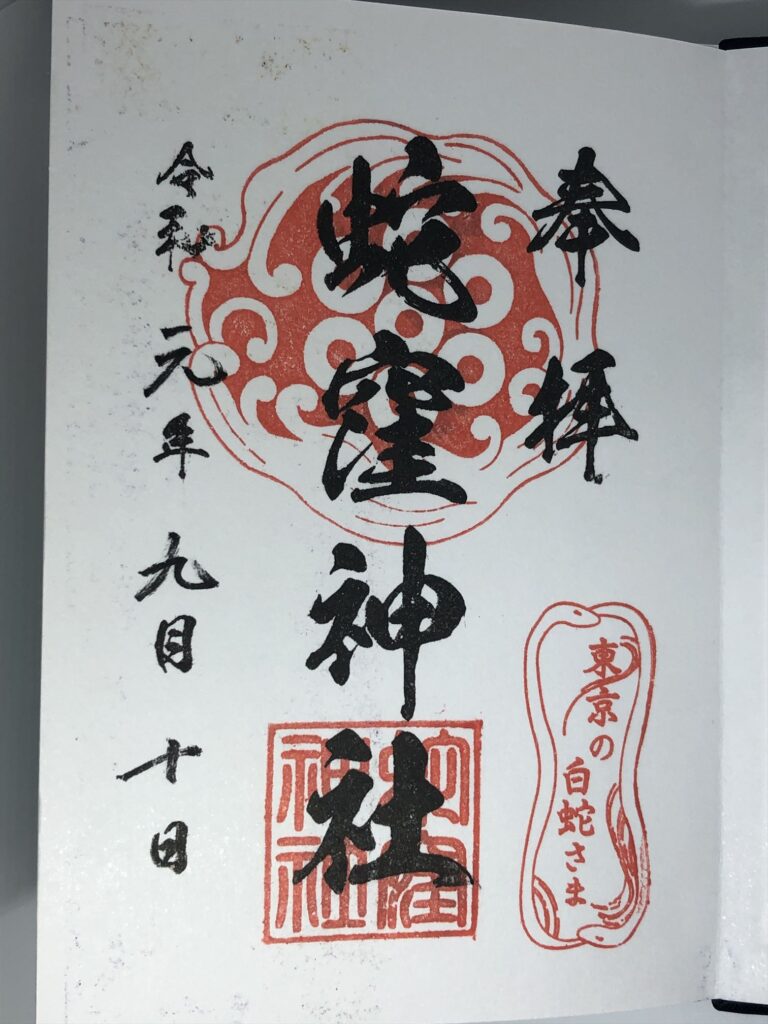 奉拝
蛇窪神社
蛇窪神社
東京の
白蛇さま
令和元年九月十日